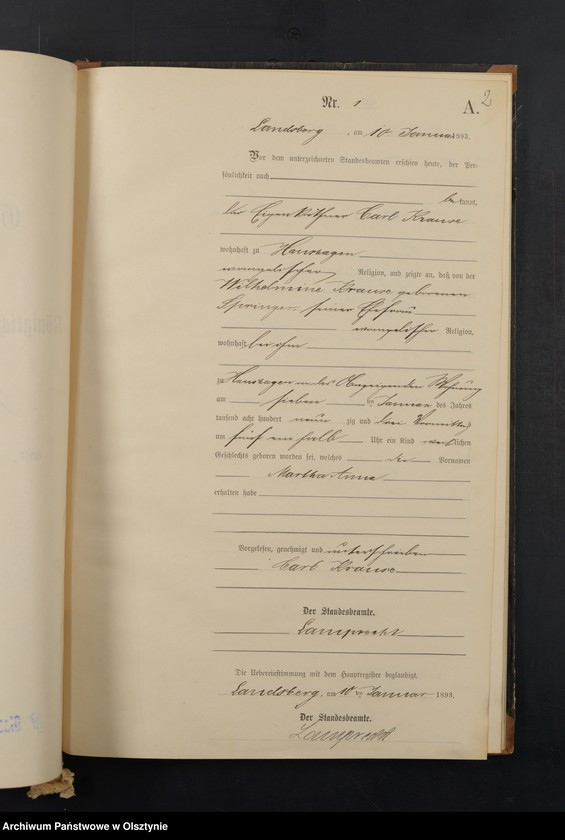 Nr. 1
A. 2
Landsberg, am 10. Januar 1893.
Vor dem unterzeichneten Standesbeamten erschien heute, der Per-
sönlichkeit nach
bekannt,
der Eigenkäthner Carl Krause
wohnhaft zu Hanshagen
evangelischer Religion, und zeigte an, daß von der
Wilhelmine Krause geborenen
Springer, seiner Ehefrau
evangelischer Religion,
wohnhaft bei ihm
zu Hanshagen in des Wohnung
am sieben ten Januar des Jahres
tausend acht hundert neun zig und drei Vormittags
um fünf ein halb Uhr ein Kind weiblichen
Geschlechts geboren worden sei, welches die Vornamen
Martha Anna
erhalten habe
Vorgelesen, genehmigt und unterschrieben
Carl Krause
Der Standesbeamte.
Lamprecht
Die Uebereinstimmung mit dem Hauptregister beglaubigt.
Landsberg, am 10 ten Januar 1893.
Der Standesbeamte.
Lamprecht
Archiwum Państwowe w Olsztynie